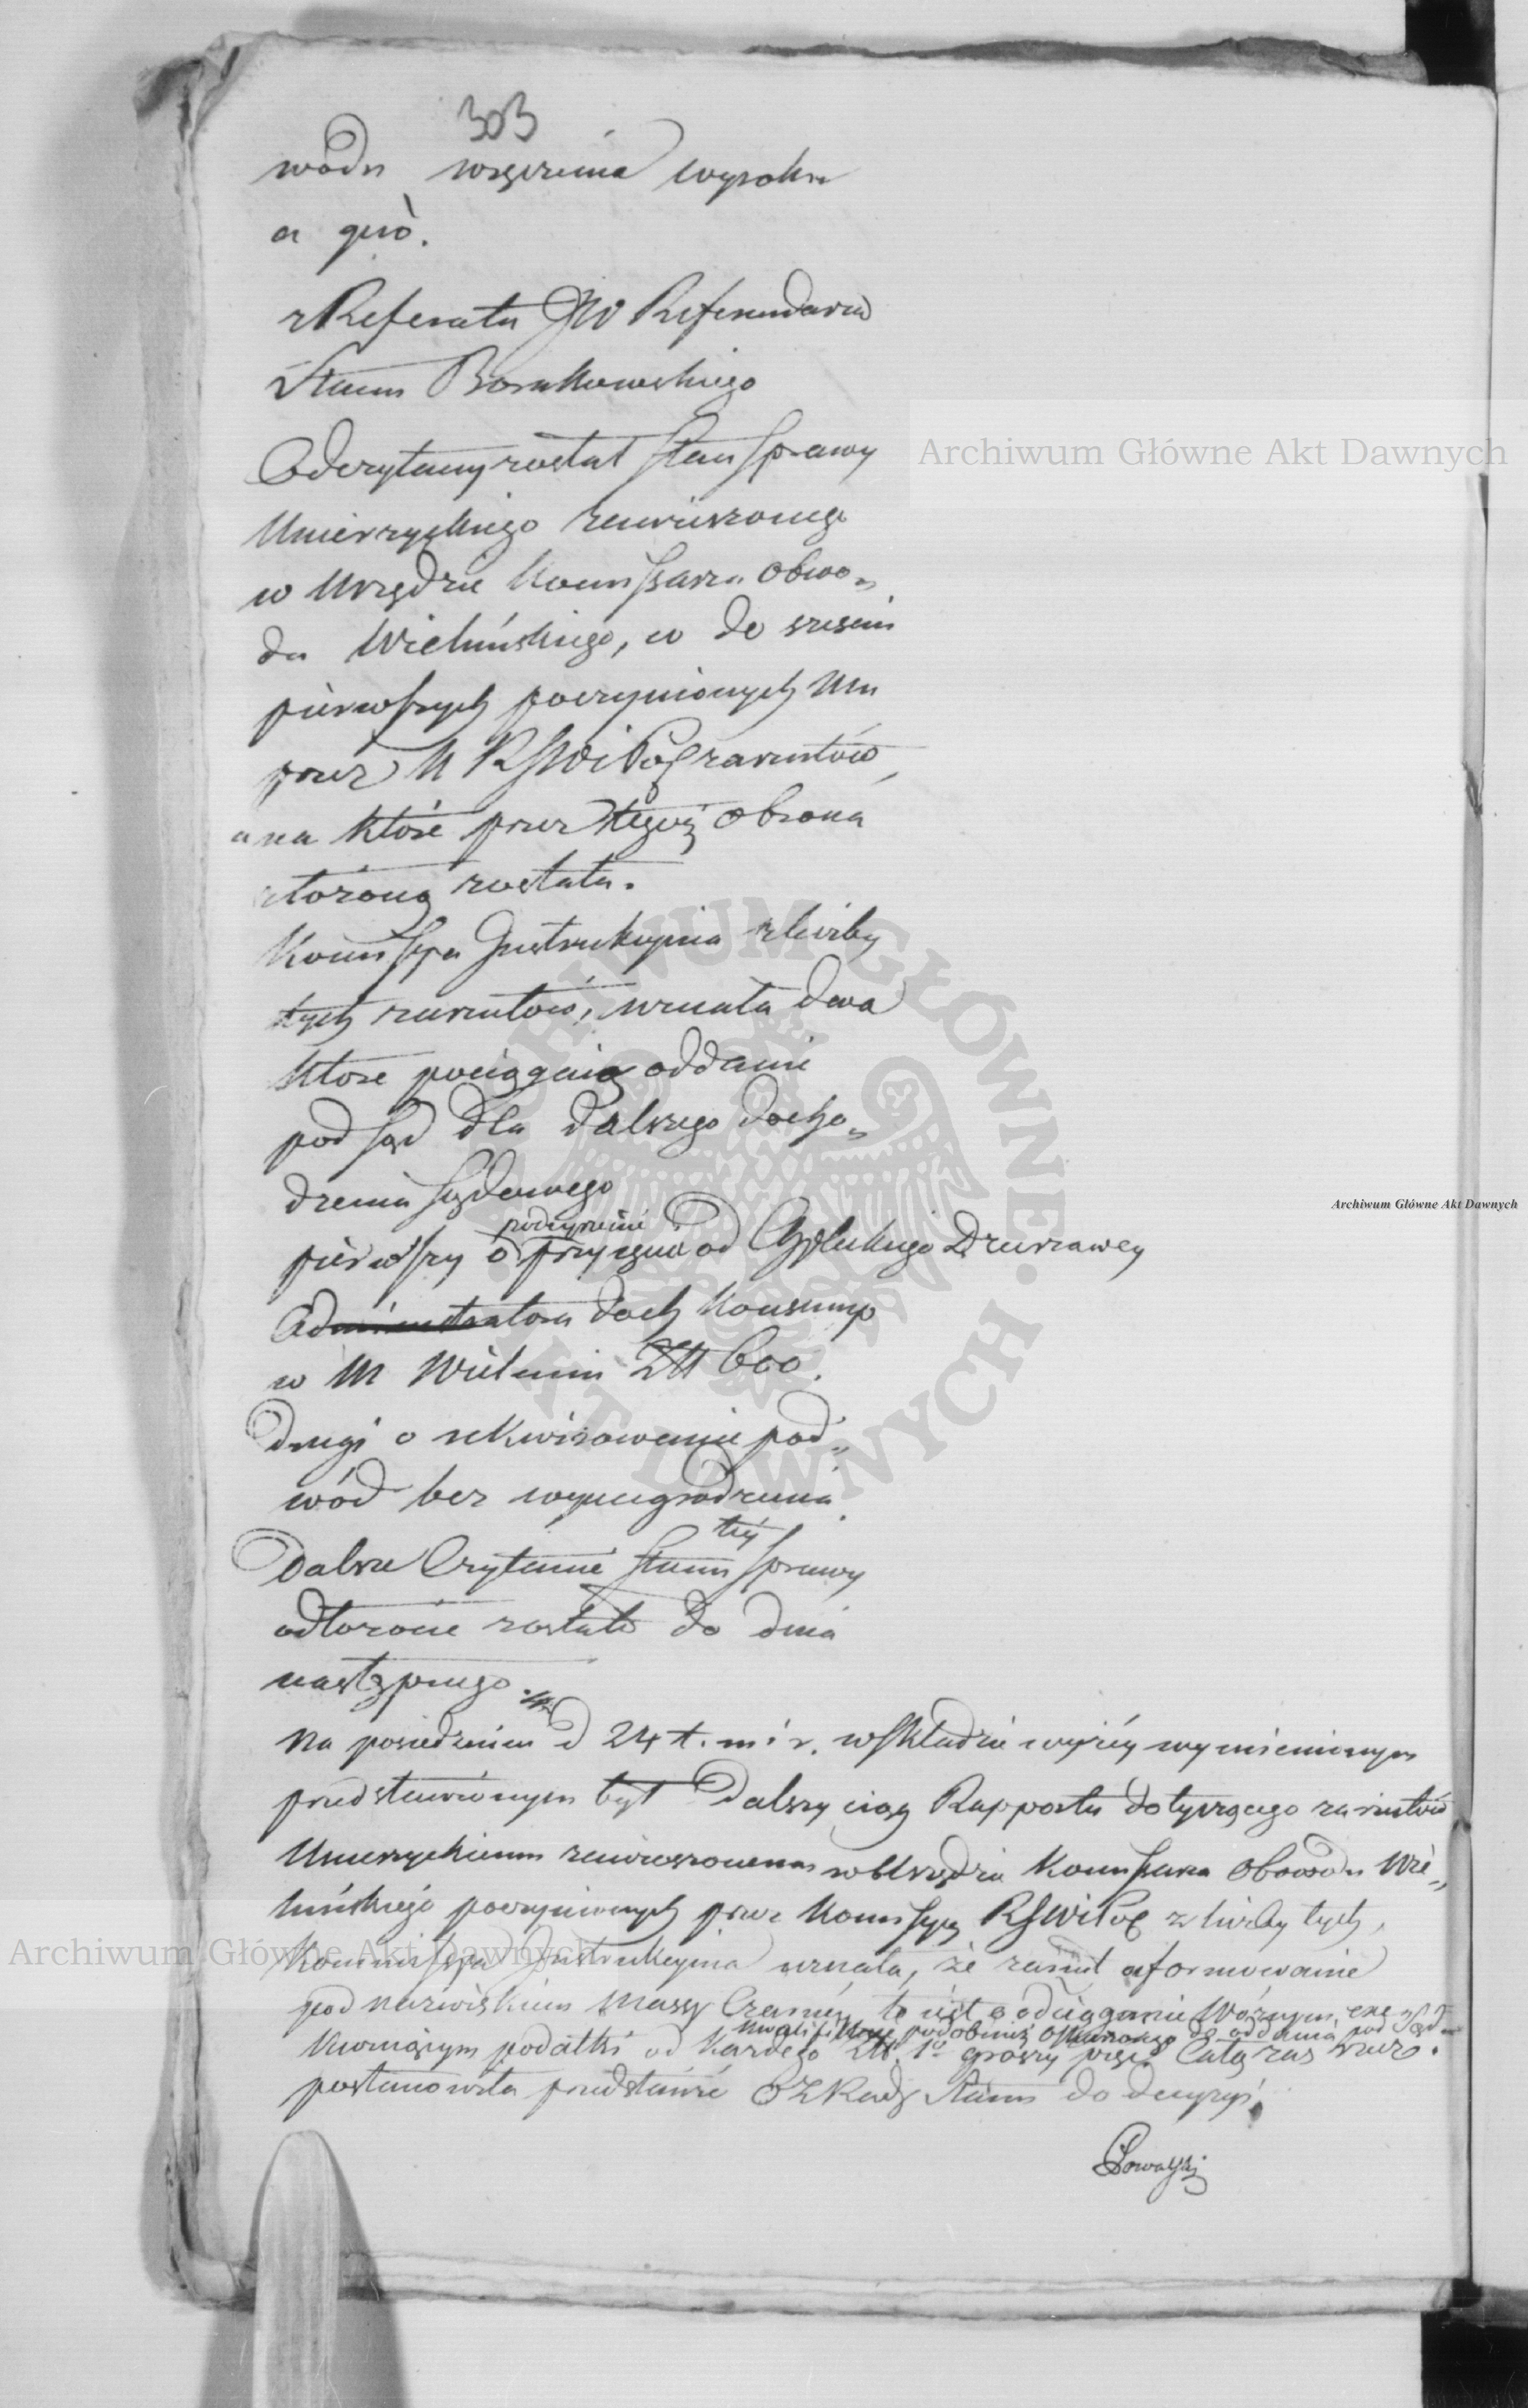 303
wodu wręczenia wyroku
a quo.
z Referatu JW Referendarza
Stanu Boszkowskiego
Odczytany został Stan Sprawy
Umierzyskiego zawieszonego
w Urzędzie Kommissarza Obwo„
du Wieluńskiego, co do sześciu
pierwszych poczynionych Mu
przez K R S W i Pol zarzutów
a na które przez tegoż obrona
złożoną została.
Kommissya Instrukcyjna z liczby
tych zarzutów, uznała dwa
które pociągają oddanie
pod sąd dla dalszego docho„
dzenia sądowego
podczynienie
pierwszy o przyjęcie od Dzierżawcy
Administratora doch Konsump
w M Wieluniu Złł 600.
Drugi o rekwirowanie pod„
wód bez wynagrodzenia
téy
Dalsze Czytanie Stanu Sprawy
odłożone zostało do dnia
następnego.
Na posiedzeniu d 24 t. m. i r. w składzie wyżéy wymienionym
przedstawionym był Dalszy ciąg Rapportu dotyczącego zarzutów
Umierzyskiemu zawieszonemu w Urzędzie Kommissarza Obwodu Wie„
luńskiego poczynionych przez Kommissyą RSWiPol z liczby tych,
Kommissya Instrukcyjna uznała, że zarzut uformowanie
pod nazwiskiem Massy Czarnéy, to iest o odciąganie Woźnym, exe
kwalifikuje podobnież Oskarżonego do oddania pod Sąd
kwuiącym podatki od każdego Złł. 1o groszy pięć Całą zaś rzecz
postanowiła przedstawić O Z Rady Stanu do decyzyi.
Archiwum Główne Akt Dawnych
Archiwum Główne Akt Dawnych
Archiwum Główne Akt Dawnych
ARCHIWUM GŁÓWNE · AKT DAWNYCH ·